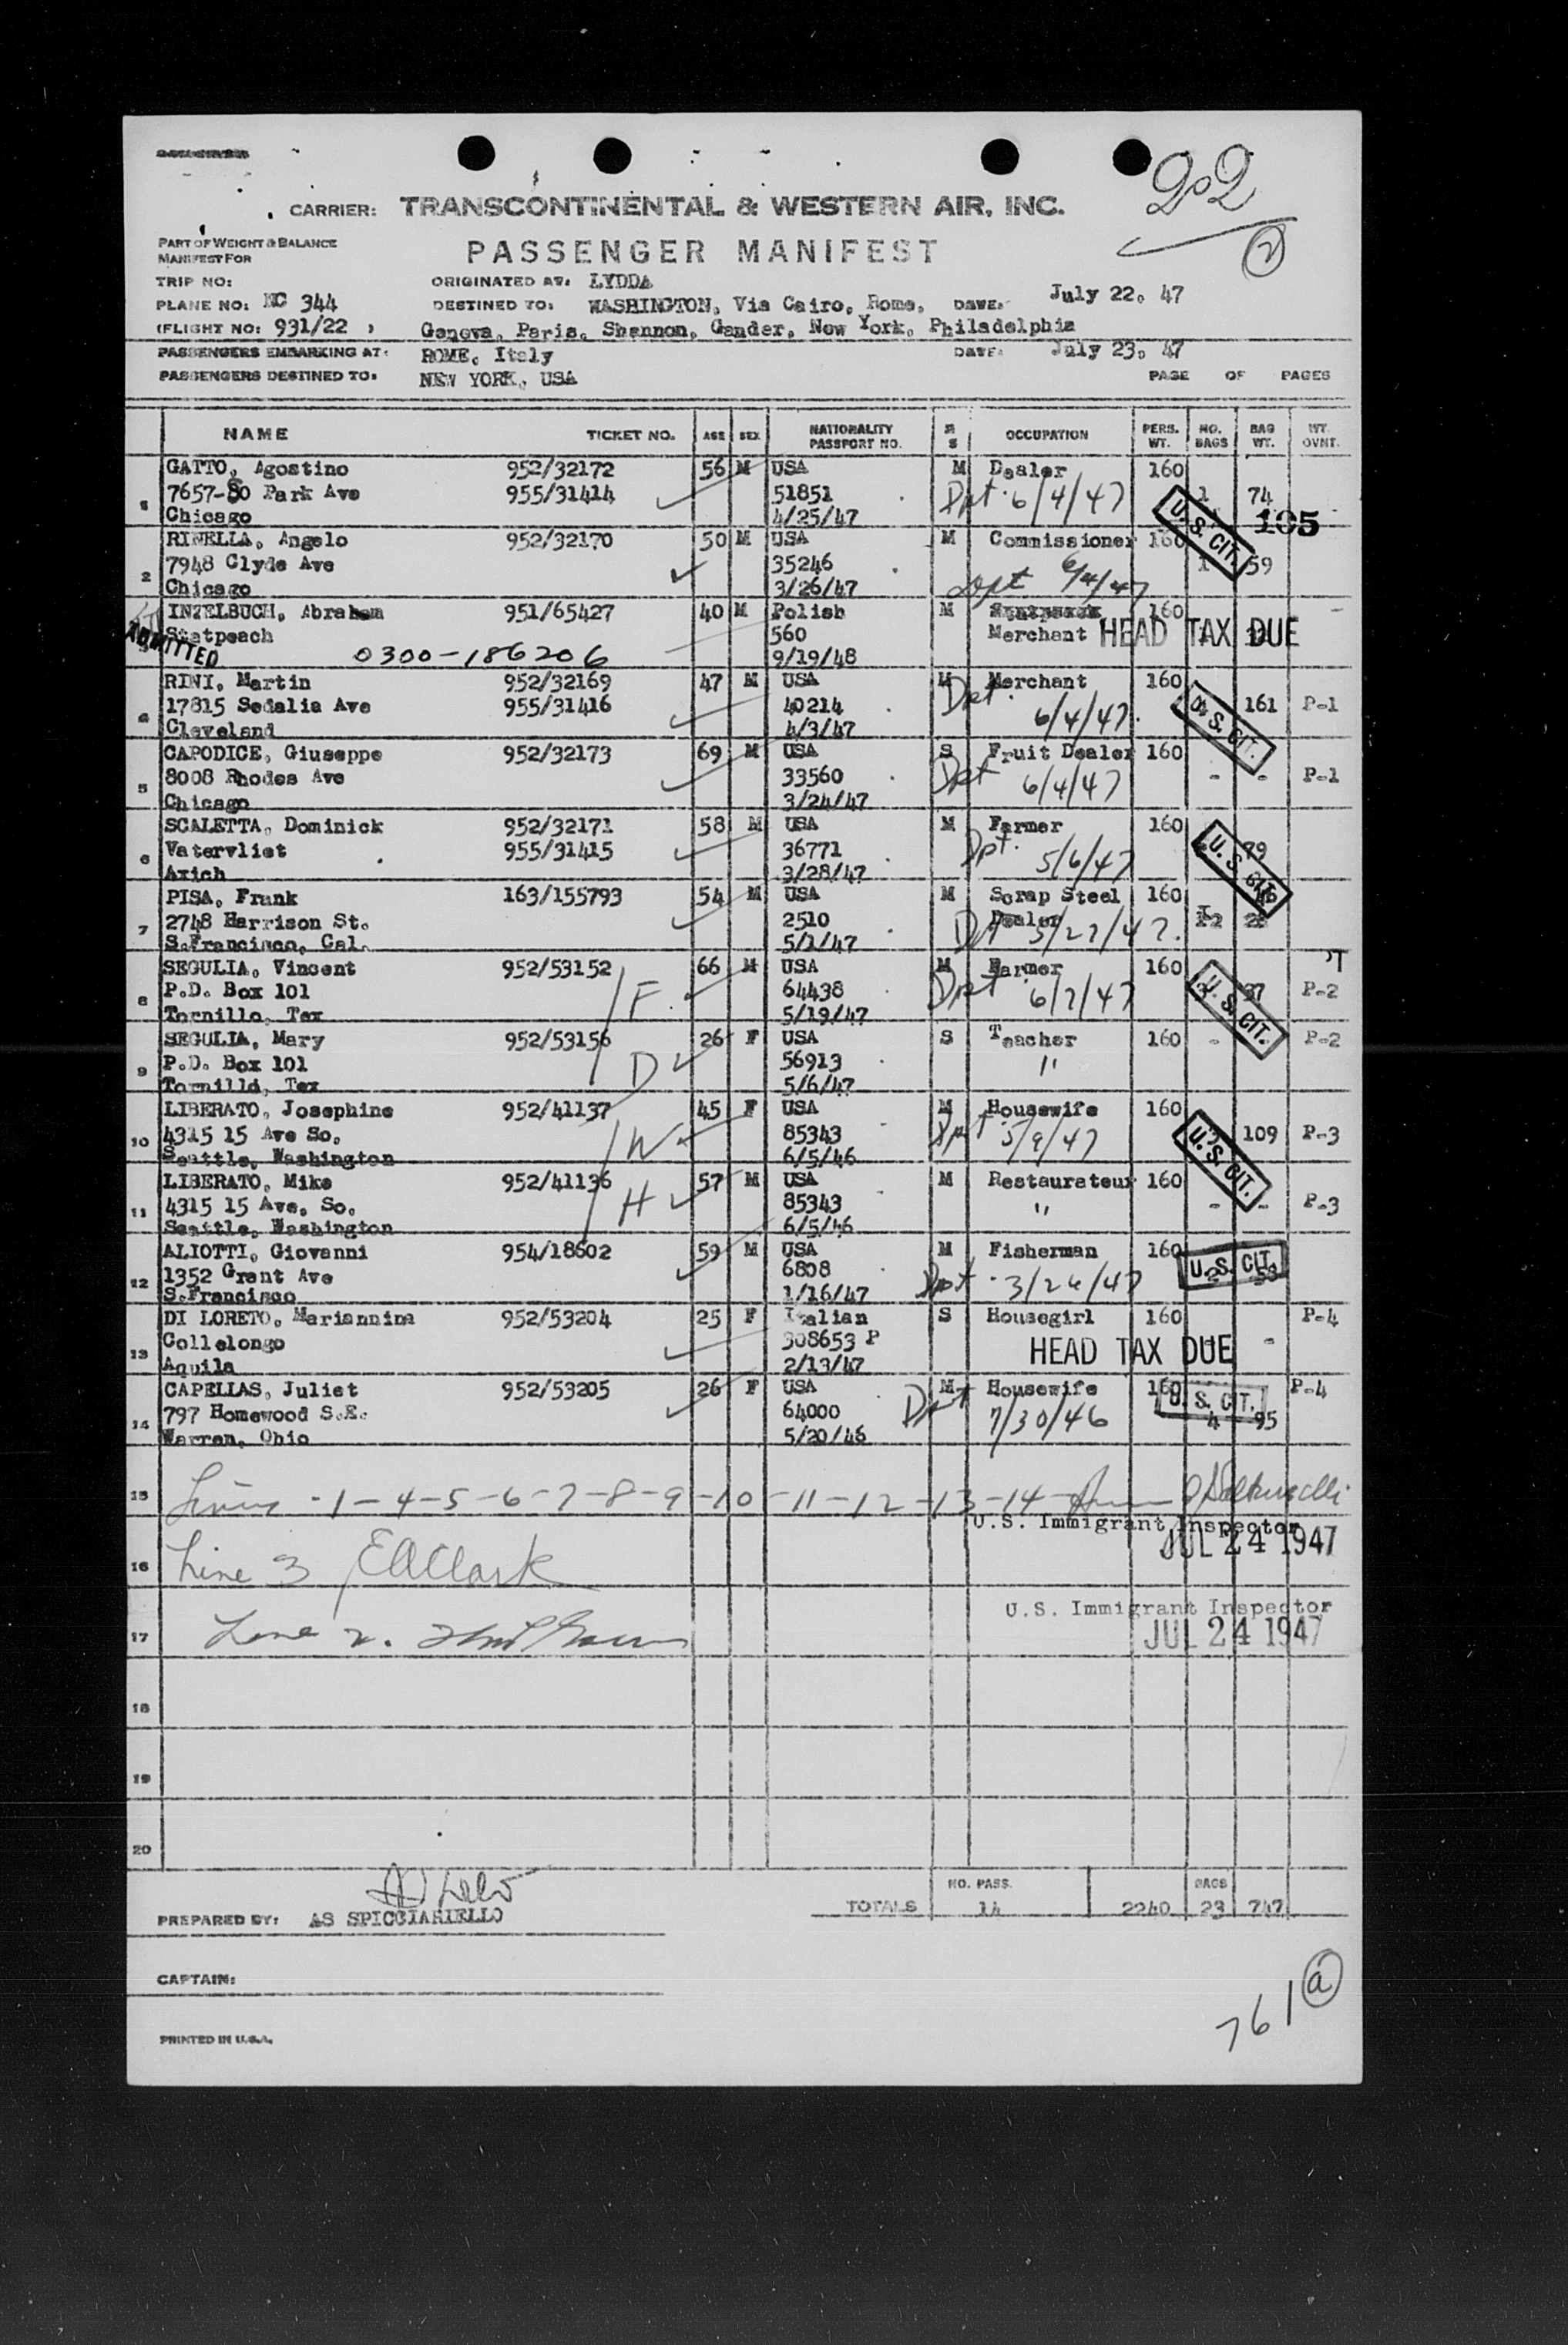 202
2
CARRIER: TRANSCONTINENTAL & WESTERN AIR, INC.
PART OF WEIGHT & BALANCE
MANIFEST FOR
PASSENGER MANIFEST
TRIP NO: ORIGINATED AT: LYDDA
PLANE NO: NC 344 DESTINED TO: WASHINGTON, Via Cairo, Rome, DATE: July 22, 47
(FLIGHT NO: 931/22 ) Geneva, Paris, Shannon, Gander, New York, Philadelphia
PASSENGERS EMBARKING AT: ROME, Italy DATE: July 23, 47
PASSENGERS DESTINED TO: NEW YORK, USA PAGE OF PAGES
NAME TICKET NO. AGE SEX NATIONALITY PASSPORT NO. M S OCCUPATION PERS. WT. NO. BAGS BAG WT. WT. OVNT.
GATTO, Agostino 952/32172 56 M USA M Dealer 160
1 7657-80 Park Ave 955/31414 51851 Dpt. 6/4/47 1 74
Chicago 4/25/47 U.S. CIT. 105
RINELLA, Angelo 952/32170 50 M USA M Commissioner 160
2 7948 Clyde Ave 35246 6/4/47 1 59
Chicago 3/26/47 Dpt
INZELBUCH, Abraham 951/65427 40 M Polish M 160
Statpeach 560 Merchant HEAD TAX DUE
ADMITTED 0300-186206 9/19/48
RINI, Martin 952/32169 47 M USA M Merchant 160
4 17815 Sedalia Ave 955/31416 40214 Dpt. 6/4/47. U.S. CIT. 161 P-1
Cleveland 4/3/47
CAPODICE, Giuseppe 952/32173 69 M USA S Fruit Dealer 160
5 8008 Rhodes Ave 33560 Dpt 6/4/47 - - P-1
Chicago 3/24/47
SCALETTA, Dominick 952/32171 58 M USA M Farmer 160
6 Vatervliet 955/31415 36771 Dpt. 5/6/47 U.S. CIT. 79
Axich 3/28/47
PISA, Frank 163/155793 54 M USA M Scrap Steel 160
7 2748 Harrison St. 2510 Dealer
S.Francisco, Cal. 5/1/47 Dpt 3/27/47.
SEGULIA, Vincent 952/53152 66 M USA M Farmer 160
8 P.O. Box 101 F 64438 Dpt 6/7/47 U.S. CIT. 37 P-2
Tornillo, Tex 5/19/47
SEGULIA, Mary 952/53156 26 F USA S Teacher 160 - P-2
9 P.O. Box 101 D 56913 "
Tornillo, Tex 5/6/47
LIBERATO, Josephine 952/41137 45 F USA M Housewife 160
10 4315 15 Ave So. W 85343 Dpt. 5/9/47 U.S. CIT. 109 P-3
Seattle, Washington 6/5/46
LIBERATO, Mike 952/41136 57 M USA M Restaurateur 160
11 4315 15 Ave. So. H 85343 " - - P-3
Seattle, Washington 6/5/46
ALIOTTI, Giovanni 954/18602 59 M USA M Fisherman 160
12 1352 Grant Ave 6808 Dpt. 3/26/47 U.S. CIT. 53
S.Francisco 1/16/47
DI LORETO, Mariannina 952/53204 25 F Italian S Housegirl 160 P-4
13 Collelongo 308653 P HEAD TAX DUE -
Aquila 2/13/47
CAPELLAS, Juliet 952/53205 26 F USA M Housewife 160 P-4
14 797 Homewood S.E. 64000 Dpt 7/30/46 U.S. CIT. 4 95
Warren, Ohio 5/20/46
15 Lines -1-4-5-6-7-8-9-10-11-12-13-14
U.S. Immigrant Inspector
JUL 24 1947
16 Line 3 EA Clark
U.S. Immigrant Inspector
17 Line 2. JUL 24 1947
18
19
20
NO. PASS. BAGS
TOTALS 14 2240 23 747
PREPARED BY: AS SPICCIARIELLO
CAPTAIN:
761 a
PRINTED IN U.S.A.